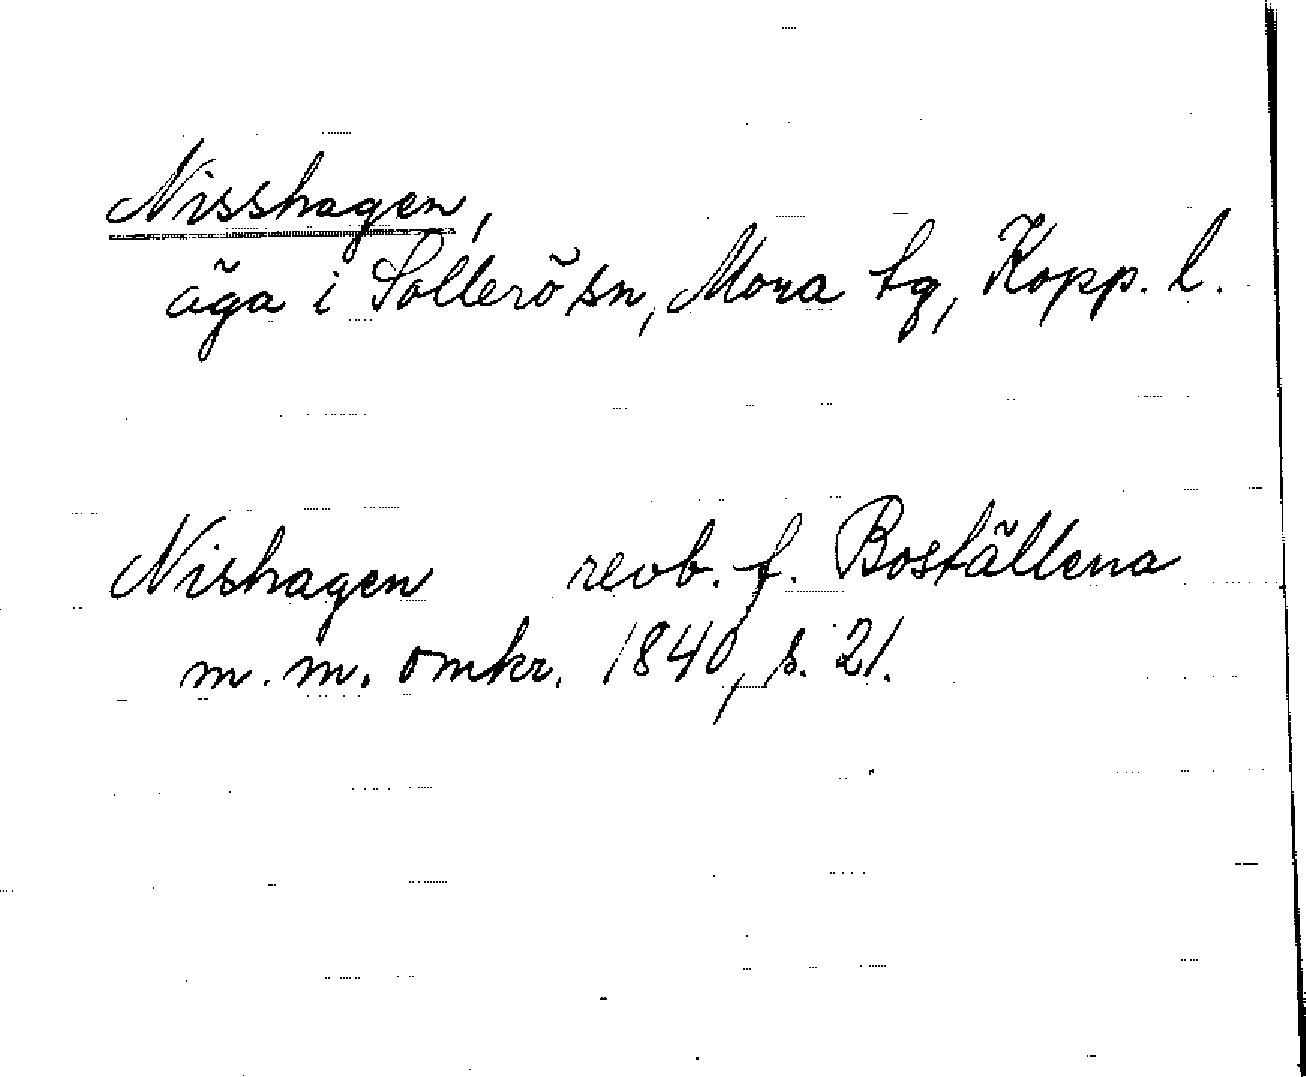 Nisshagen,
äga i Sollerö sn, Mora tg, Kopp. l.
Nishagen revb. f. Boställena
m. m. omkr. 1840, s. 21.